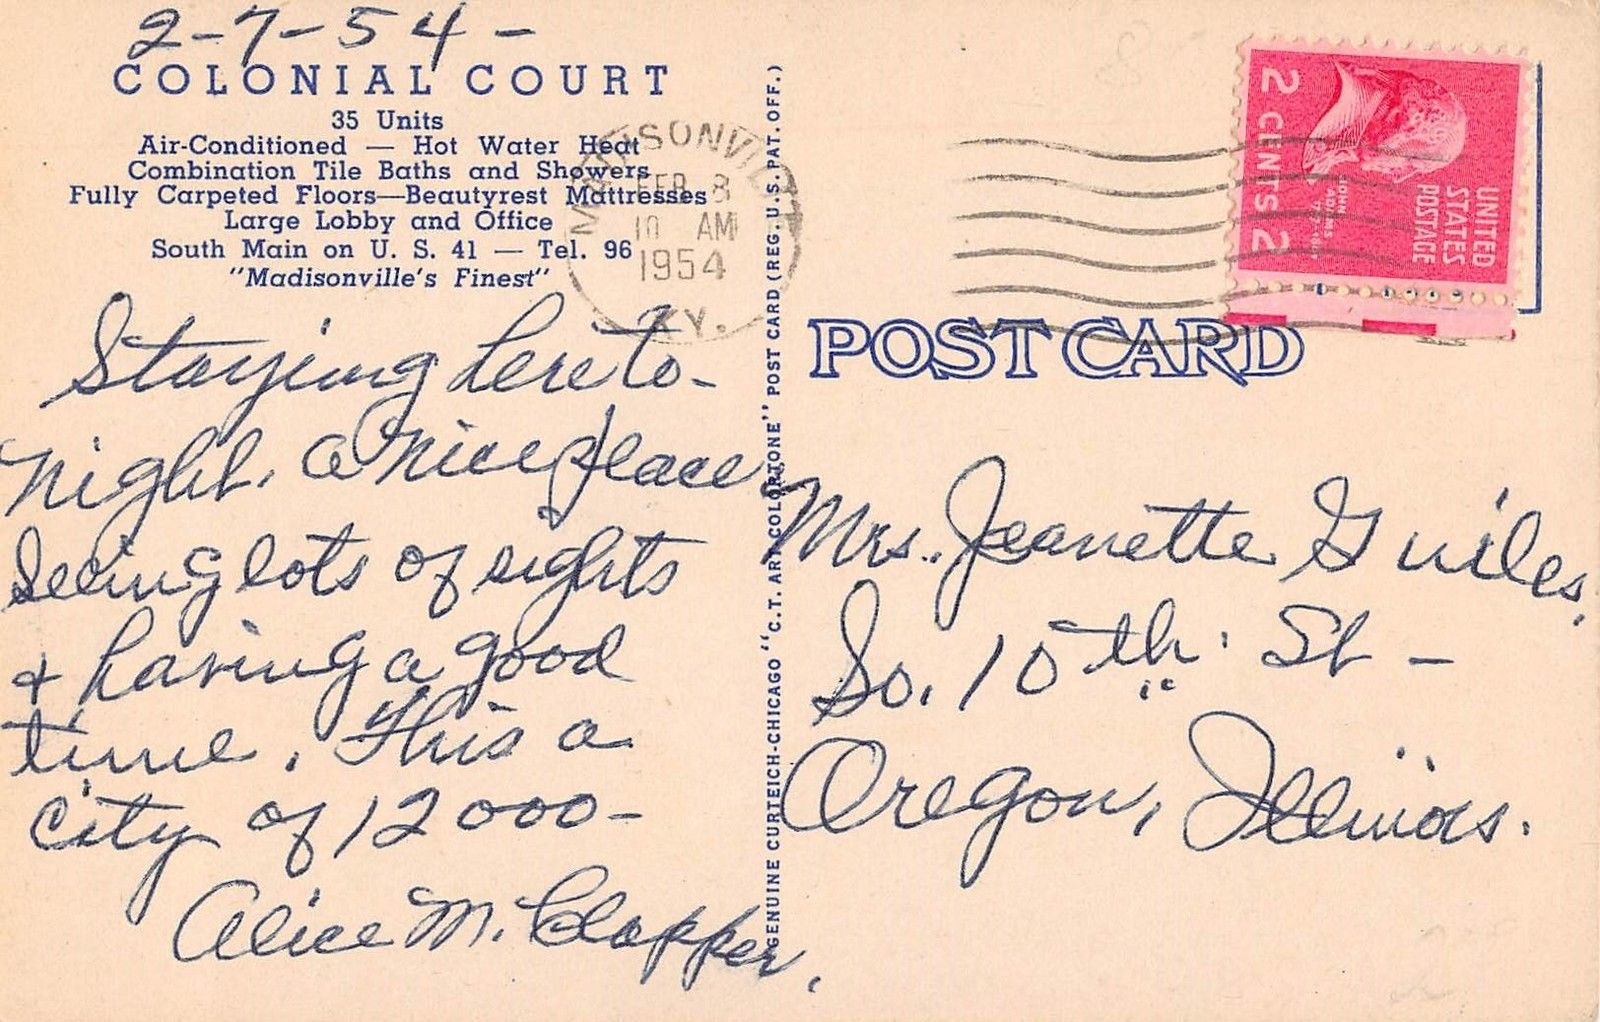 2-7-54-
COLONIAL COURT
35 Units
Air-Conditioned — Hot Water Heat
Combination Tile Baths and Showers
Fully Carpeted Floors—Beautyrest Mattresses
Large Lobby and Office
South Main on U. S. 41 — Tel. 96
"Madisonville's Finest"
Staying here to-
night. a nice place
Seeing lots of sights
+ having a good
time. This a
city of 12000-
Alice M. Clapper.
MADISONVILLE
FEB 8
10 AM
1954
KY.
GENUINE CURTEICH-CHICAGO "C.T. ART-COLORTONE" POST CARD (REG. U.S. PAT. OFF.)
UNITED
STATES
POSTAGE
JOHN
ADAMS
2 CENTS 2
POST CARD
Mrs. Jeanette Guiles,
So. 10th. St-
Oregon, Illinois.